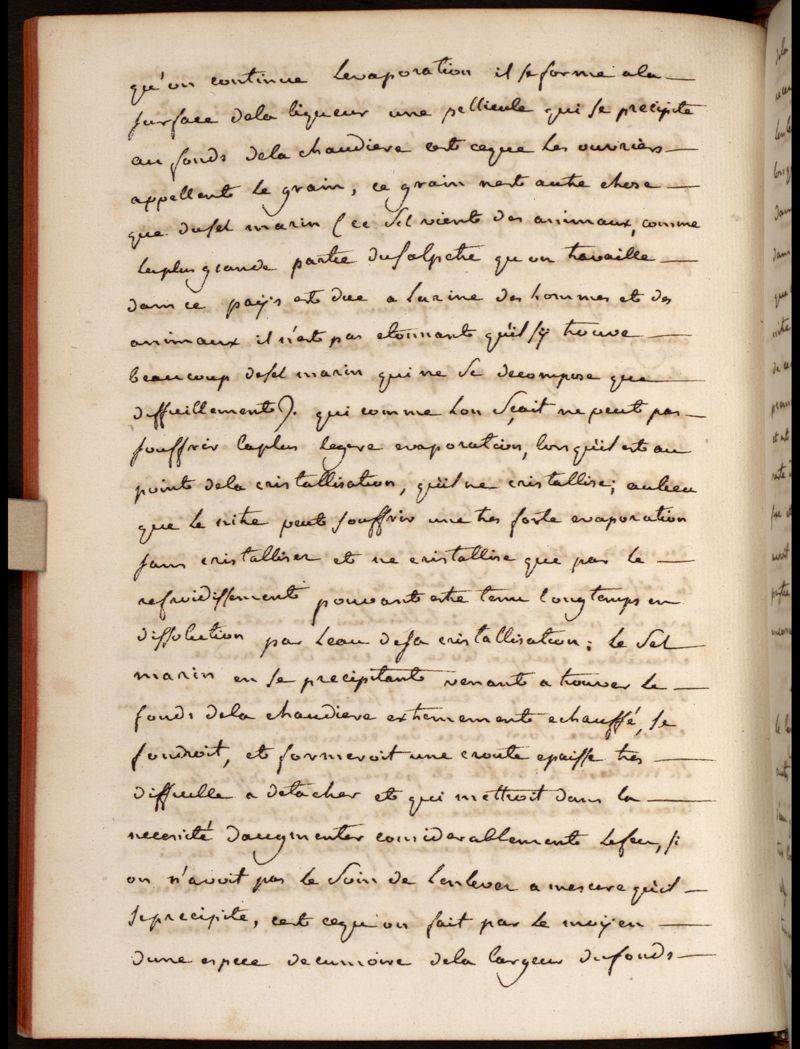 qu'on continue Levaporation il se forme ala
surface dela liqueur une pellicule qui se precipite
au fonds dela chaudiere cest ceque Les ouvriers
appellent Le grain, ce grain nest autre chose
que dusel marin (ce Sel vient des animaux, comme
laplus grande partie dusalpetre qu'on travaille
dans ce paÿs est due a Lurine des hommes et des
animaux il n'est pas etonnant qu'il sÿ trouve
beaucoup desel marin qui ne Se decompose que
difficillement). qui comme Lon Sçait ne peut pas
souffrir laplus legere evaporation, lorsquil est au
point dela cristallisation, qu'il ne cristallise; aulieu
que Le nitre peut souffrir une tres forte evaporation
sans cristalliser et ne cristallise que par le
refroidissement pouvant estre tenu longtemps en
dissolution par Leau desa cristallisation; Le Sel
marin en se precipitant venant a trouver Le
fonds dela chaudiere extremement echauffé, se
fondroit, et formeroit une croute epaisse tres
difficille a detacher et qui mettroit dans la
necessité daugmenter considerablement Lefeu, si
on n'avoit pas le Soin de Lenlever a mesure qu'il
seprecipite, cest cequ'on fait par le moÿen
dune espece decumoire dela largeur dufonds